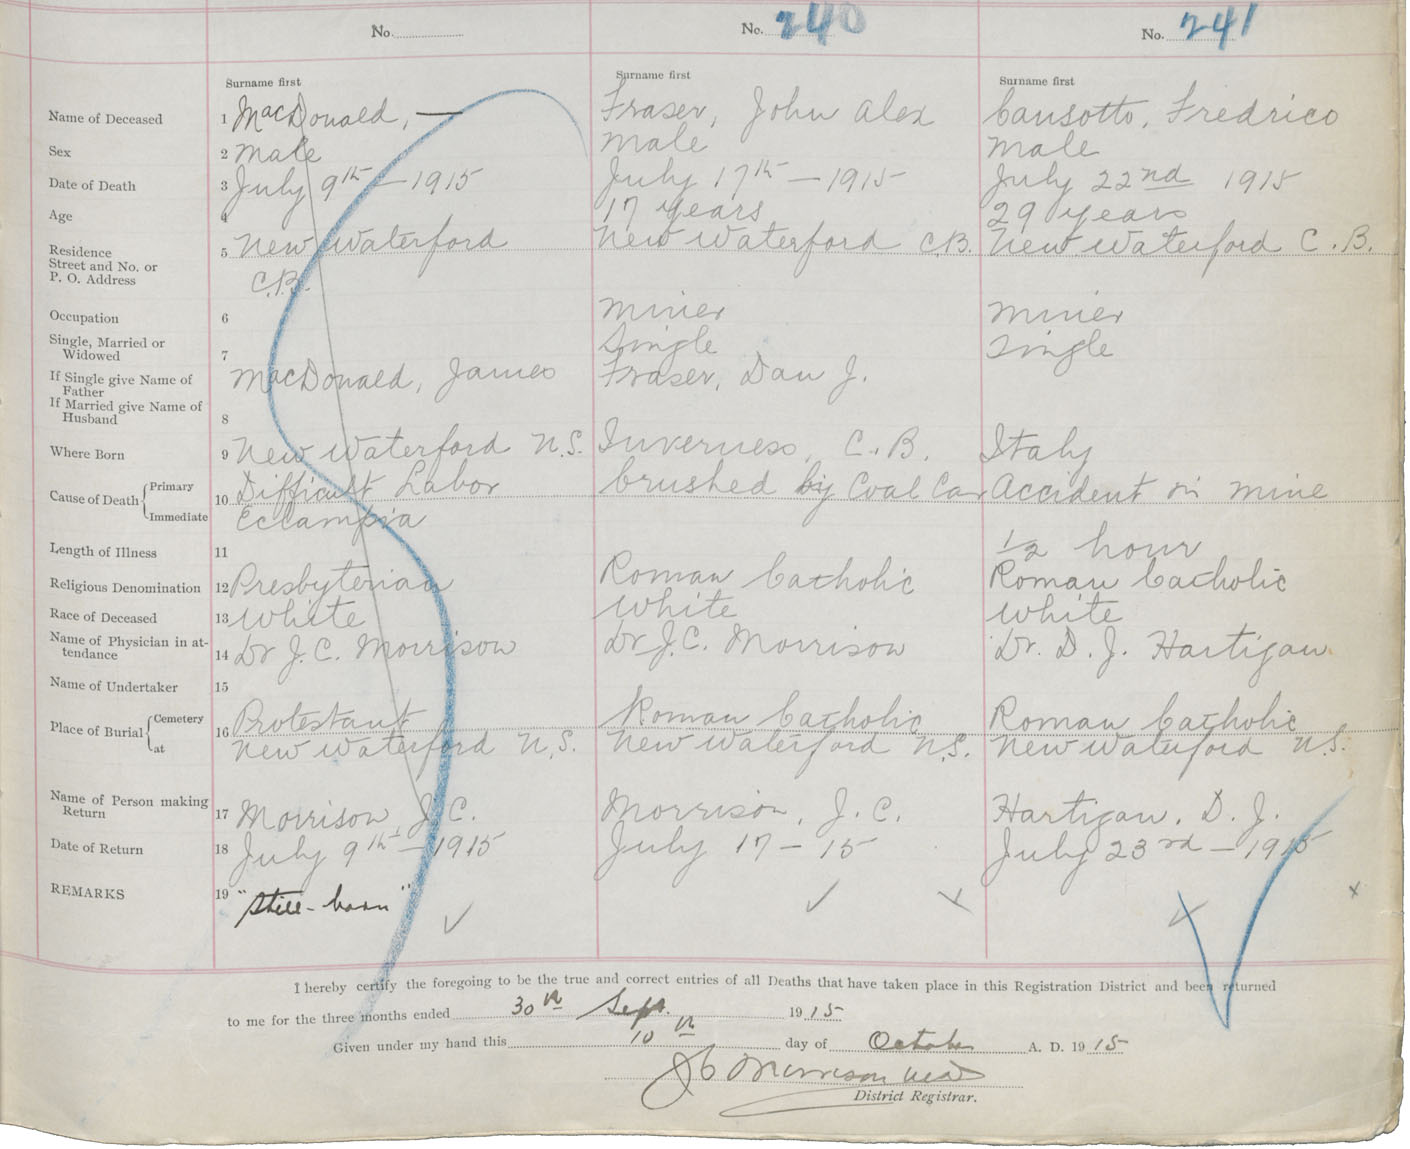 No. No. 240 No. 241
Surname first Surname first Surname first
Name of Deceased 1 MacDonald, — Fraser, John Alex Causotto, Fredrico
Sex 2 male male male
Date of Death 3 July 9th — 1915 July 17th — 1915 July 22nd 1915
Age 4 17 years 29 years
Residence
Street and No. or
P. O. Address 5 New Waterford New Waterford C.B. New Waterford C.B.
C.B.
Occupation 6 miner miner
Single, Married or
Widowed 7 Single Single
If Single give Name of
Father MacDonald, James Fraser, Dan J.
If Married give Name of
Husband 8
Where Born 9 New Waterford N.S. Inverness, C.B. Italy
Cause of Death Primary 10 Difficult Labor Crushed by Coal Car Accident in mine
Immediate Eclampsia
Length of Illness 11 1/2 hour
Religious Denomination 12 Presbyterian Roman Catholic Roman Catholic
Race of Deceased 13 White White White
Name of Physician in at-
tendance 14 Dr J.C. Morrison Dr J.C. Morrison Dr. D. J. Hartigan
Name of Undertaker 15
Place of Burial Cemetery 16 Protestant Roman Catholic Roman Catholic
at New Waterford N.S. New Waterford N.S. New Waterford N.S.
Name of Person making
Return 17 Morrison J.C. Morrison, J.C. Hartigan, D.J.
Date of Return 18 July 9th — 1915 July 17 — 15 July 23rd — 1915
REMARKS 19 "Still-born"
I hereby certify the foregoing to be the true and correct entries of all Deaths that have taken place in this Registration District and been returned
to me for the three months ended 30th Sept. 1915
Given under my hand this 10th day of October A. D. 1915
J C Morrison MD
District Registrar.